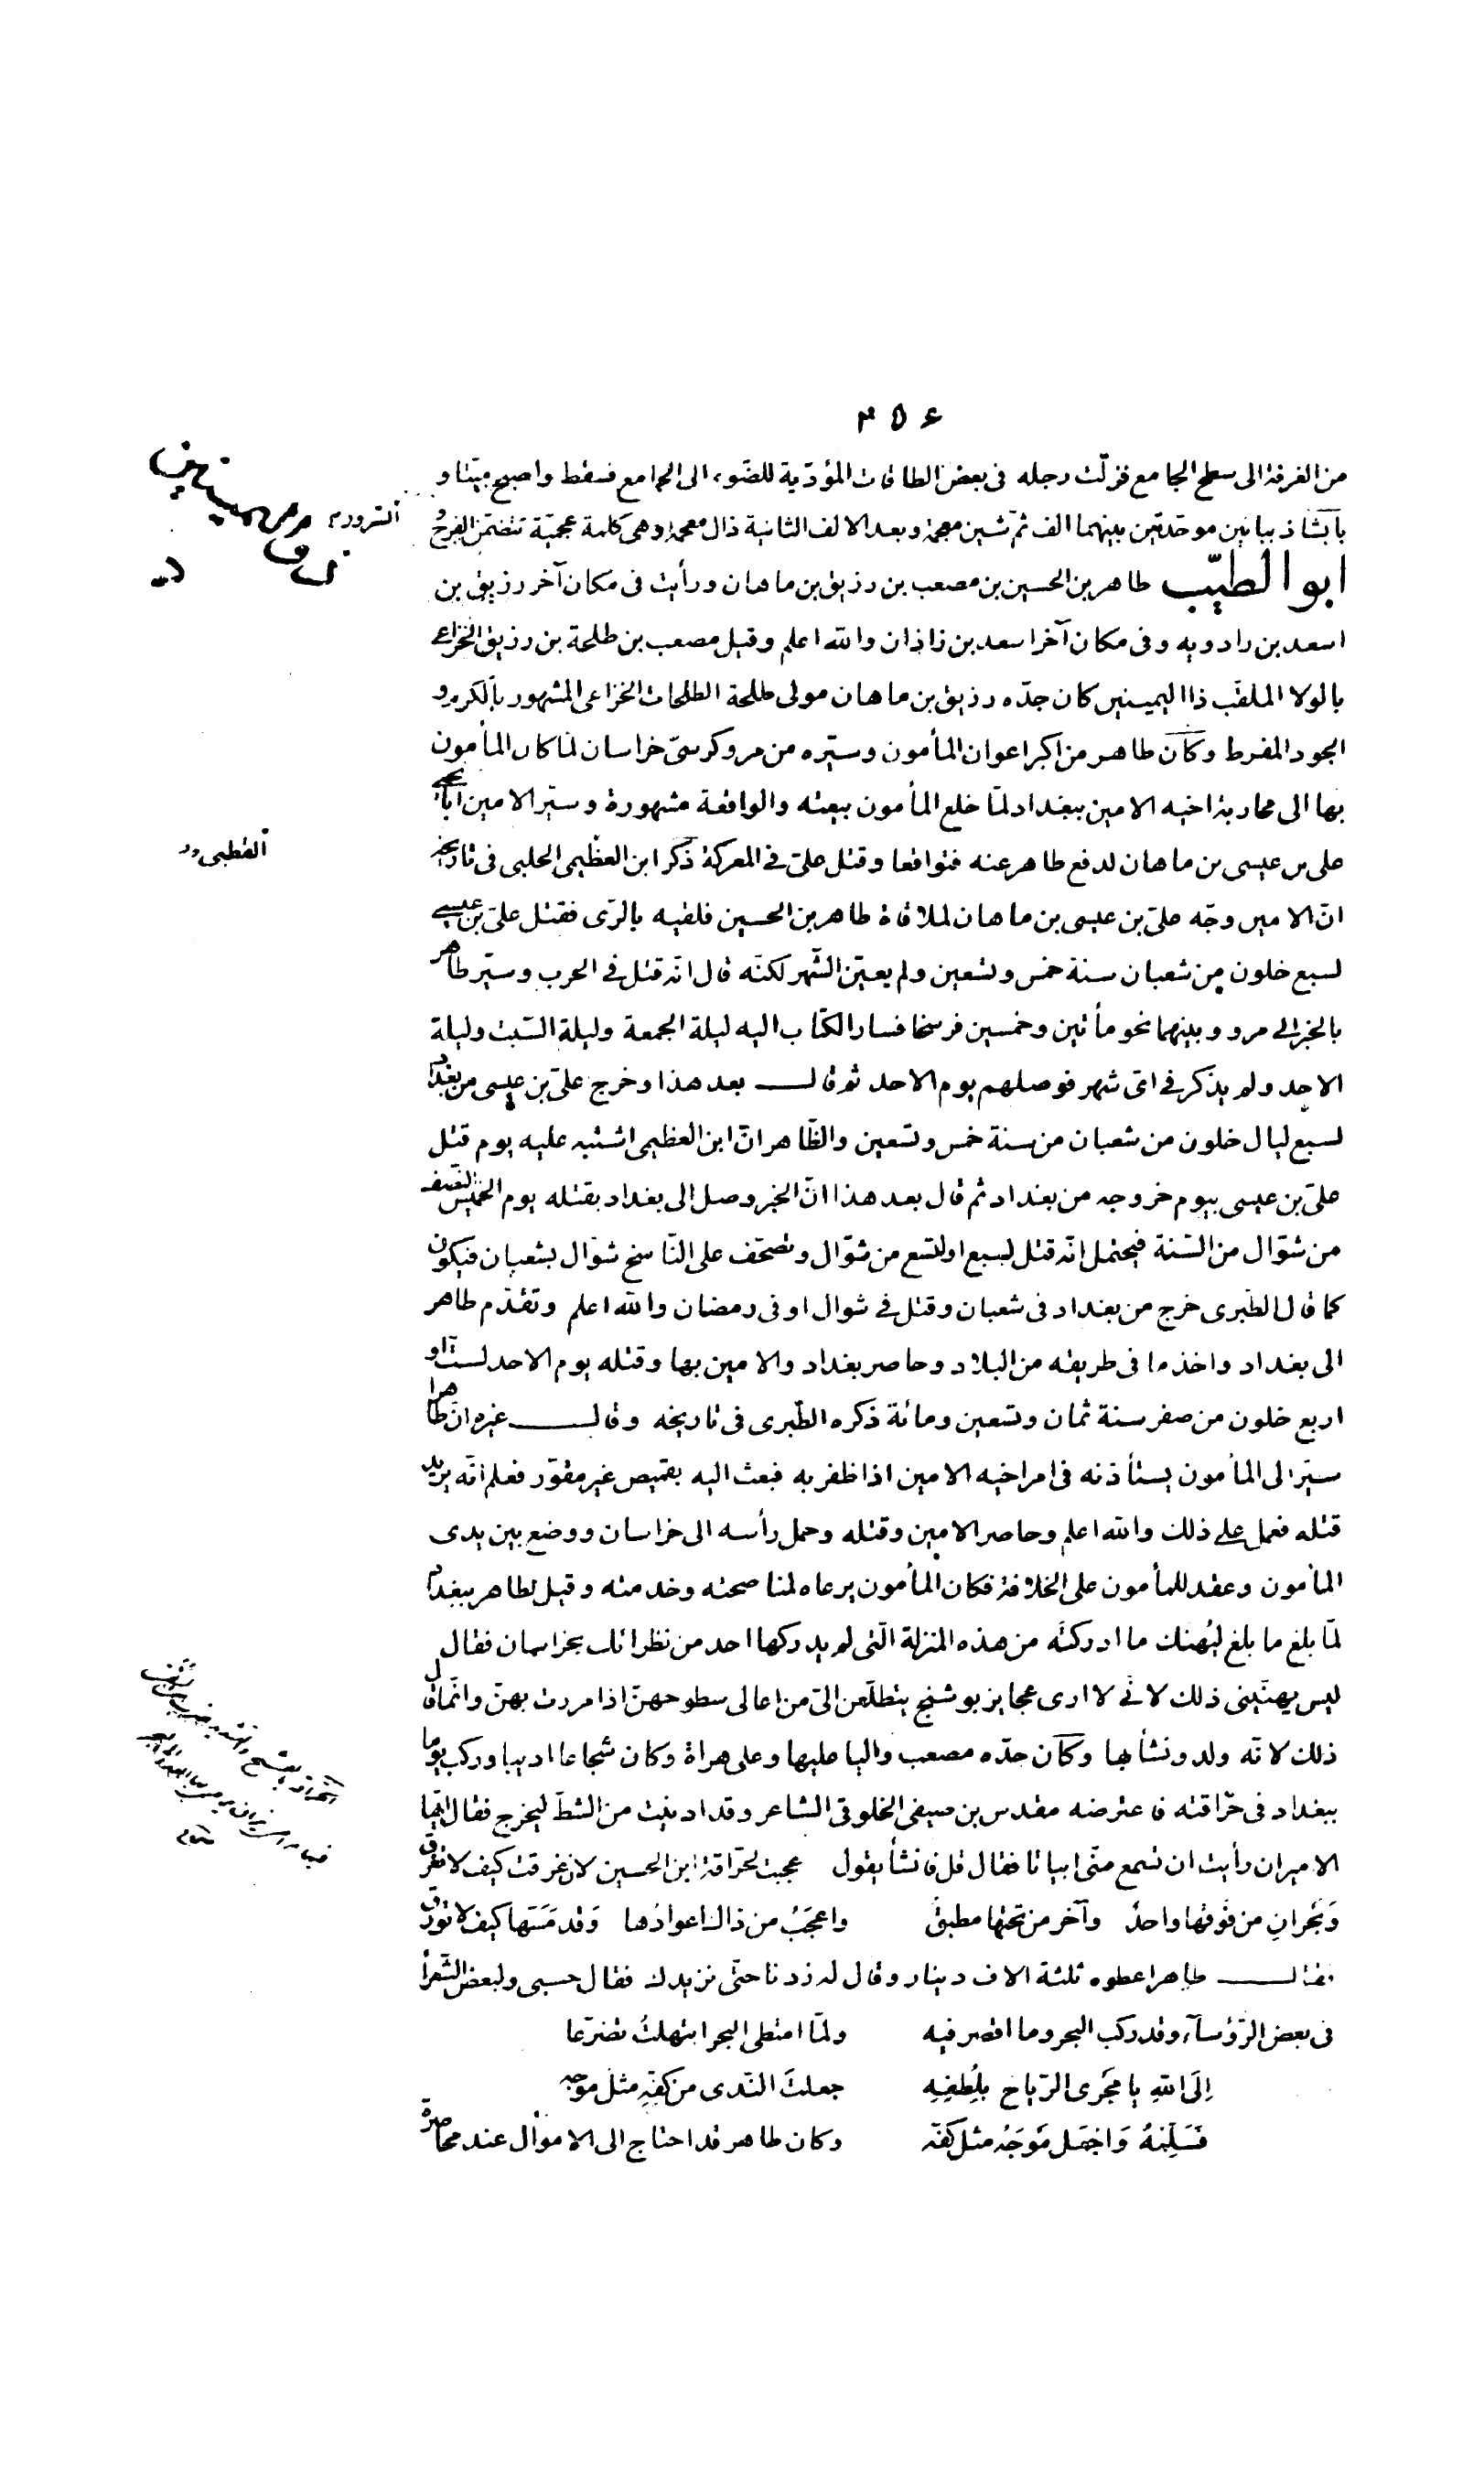 ۲۵۶
من الغرفة الى سطح الجامع فزلّت رجله فى بعض الطاقات المؤدّية للضّوء الى الجامع فسقط واصبح ميّتا و
بابشاذ ببائين موحّدتين بينهما الف ثمّ شين معجمة وبعد الالف الثانية ذال معجمة وهى كلمة عجميّة تتضمّن الفرح
السرورم
ابو الطيّب طاهر بن الحسين بن مصعب بن رزيق بن ماهان ورأيت فى مكان آخر رزيق بن
اسعد بن رادويه وفى مكان آخر اسعد بن زاذان والله اعلم وقيل مصعب بن طلحة بن رزيق الخزاعى
بالولا الملقّب ذا اليمينين كان جدّه رزيق بن ماهان مولى طلحة الطلحات الخزاعى المشهور بالكرم و
الجود المفرط وكان طاهر من اكبر اعوان المأمون وسيّره من مرو كرسىّ خراسان لمّا كان المأمون
بها الى محاربة اخيه الامين ببغداد لمّا خلع المأمون بيعته والواقعة مشهورة وسيّر الامين ابا يحيى
على بن عيسى بن ماهان لدفع طاهر عنه فتواقعا وقتل علىّ فى المعركة ذكر ابن العظيمى الحلبى فى تاريخه
القطيى ور
انّ الامين وجّه علىّ بن عيسى بن ماهان لملاقاة طاهر بن الحسين فلقيه بالرّى فقتل علىّ بن عيسى
لسبع خلون من شعبان سنة خمس وتسعين ولم يعيّن الشّهر لكنّه قال انّه قتل فى الحرب وسيّر طاهر
بالخبر الى مرو وبينهما نحو مأتين وخمسين فرسخا فسار الكتاب اليه ليلة الجمعة وليلة السّبت وليلة
الاحد ولم يذكر فى اىّ شهر فوصلهم يوم الاحد ثم قال بعد هذا وخرج علىّ بن عيسى من بغداد
لسبع ليال خلون من شعبان من سنة خمس وتسعين والظّاهر انّ ابن العظيمى اشتبه عليه يوم قتل
علىّ بن عيسى بيوم خروجه من بغداد ثم قال بعد هذا انّ الخبر وصل الى بغداد بقتله يوم الخميس النّصف
من شوّال من السّنة فيحتمل انّه قتل لسبع او لتسع من شوّال وتصحّف على النّاسخ شوّال بشعبان فيكون
كما قال الطّبرى خرج من بغداد فى شعبان وقتل فى شوال او فى رمضان والله اعلم وتقدّم طاهر
الى بغداد واخذ ما فى طريقه من البلاد وحاصر بغداد والامين بها وقتله يوم الاحد لستّ او
اربع خلون من صفر سنة ثمان وتسعين ومائة ذكره الطّبرى فى تاريخه وقال غيره انّ طاهرا
سيّر الى المأمون يستأذنه فى امر اخيه الامين اذا ظفر به فبعث اليه بقميص غير مقوّر فعلم انّه يريد
قتله فعمل على ذلك والله اعلم وحاصر الامين وقتله وحمل رأسه الى خراسان ووضع بين يدى
المأمون وعقد للمأمون على الخلافة فكان المأمون يرعاه لمناصحته وخدمته وقيل لطاهر ببغداد
لمّا بلغ ما بلغ ليُهنك ما ادركته من هذه المنزلة الّتى لم يدركها احد من نظرائك بخراسان فقال
ليس يهنّينى ذلك لانّى لا ارى عجايز بوشنج يتطلّعن الىّ من اعالى سطوحهنّ اذا مررت بهنّ وانّما قال
ذلك لانّه ولد ونشأ بها وكان جدّه مصعب واليا عليها وعلى هراة وكان شجاعا اديبا وركب يوما
ببغداد فى حرّاقته فاعترضه مقدس بن صيفى الخلوقى الشاعر وقد ادنيت من الشطّ ليخرج فقال ايّها
الامير ان رأيت ان تسمع منّى ابياتا فقال قل فانشأ يقول عجبت لحرّاقة ابن الحسين لا غرقت كيف لا تغرق
وَبَحْرانِ من فَوْقها واحدٌ وآخر من تحتها مطبقُ واعجَبُ من ذاك اعوادُها وَقد مَسَّها كيف لا تورق
فقال طاهر اعطوه ثلثة الاف دينار وقال له زدنا حتّى نزيدك فقال حسبى ولبعض الشّعرأ
فى بعض الرّؤسآء وقد ركب البحر وما اقصر فيه ولمّا امتطى البحر ابتهلتُ تضرّعا
اِلَى اللهِ يا مجْرى الرّياحِ بِلُطفِهِ جعلتَ النّدى من كفّهِ مثل موجه
فَسَلِّمْهُ وَاجْعَل مَوْجَهُ مثل كفّه وكان طاهر قد احتاج الى الاموال عند محاصرة